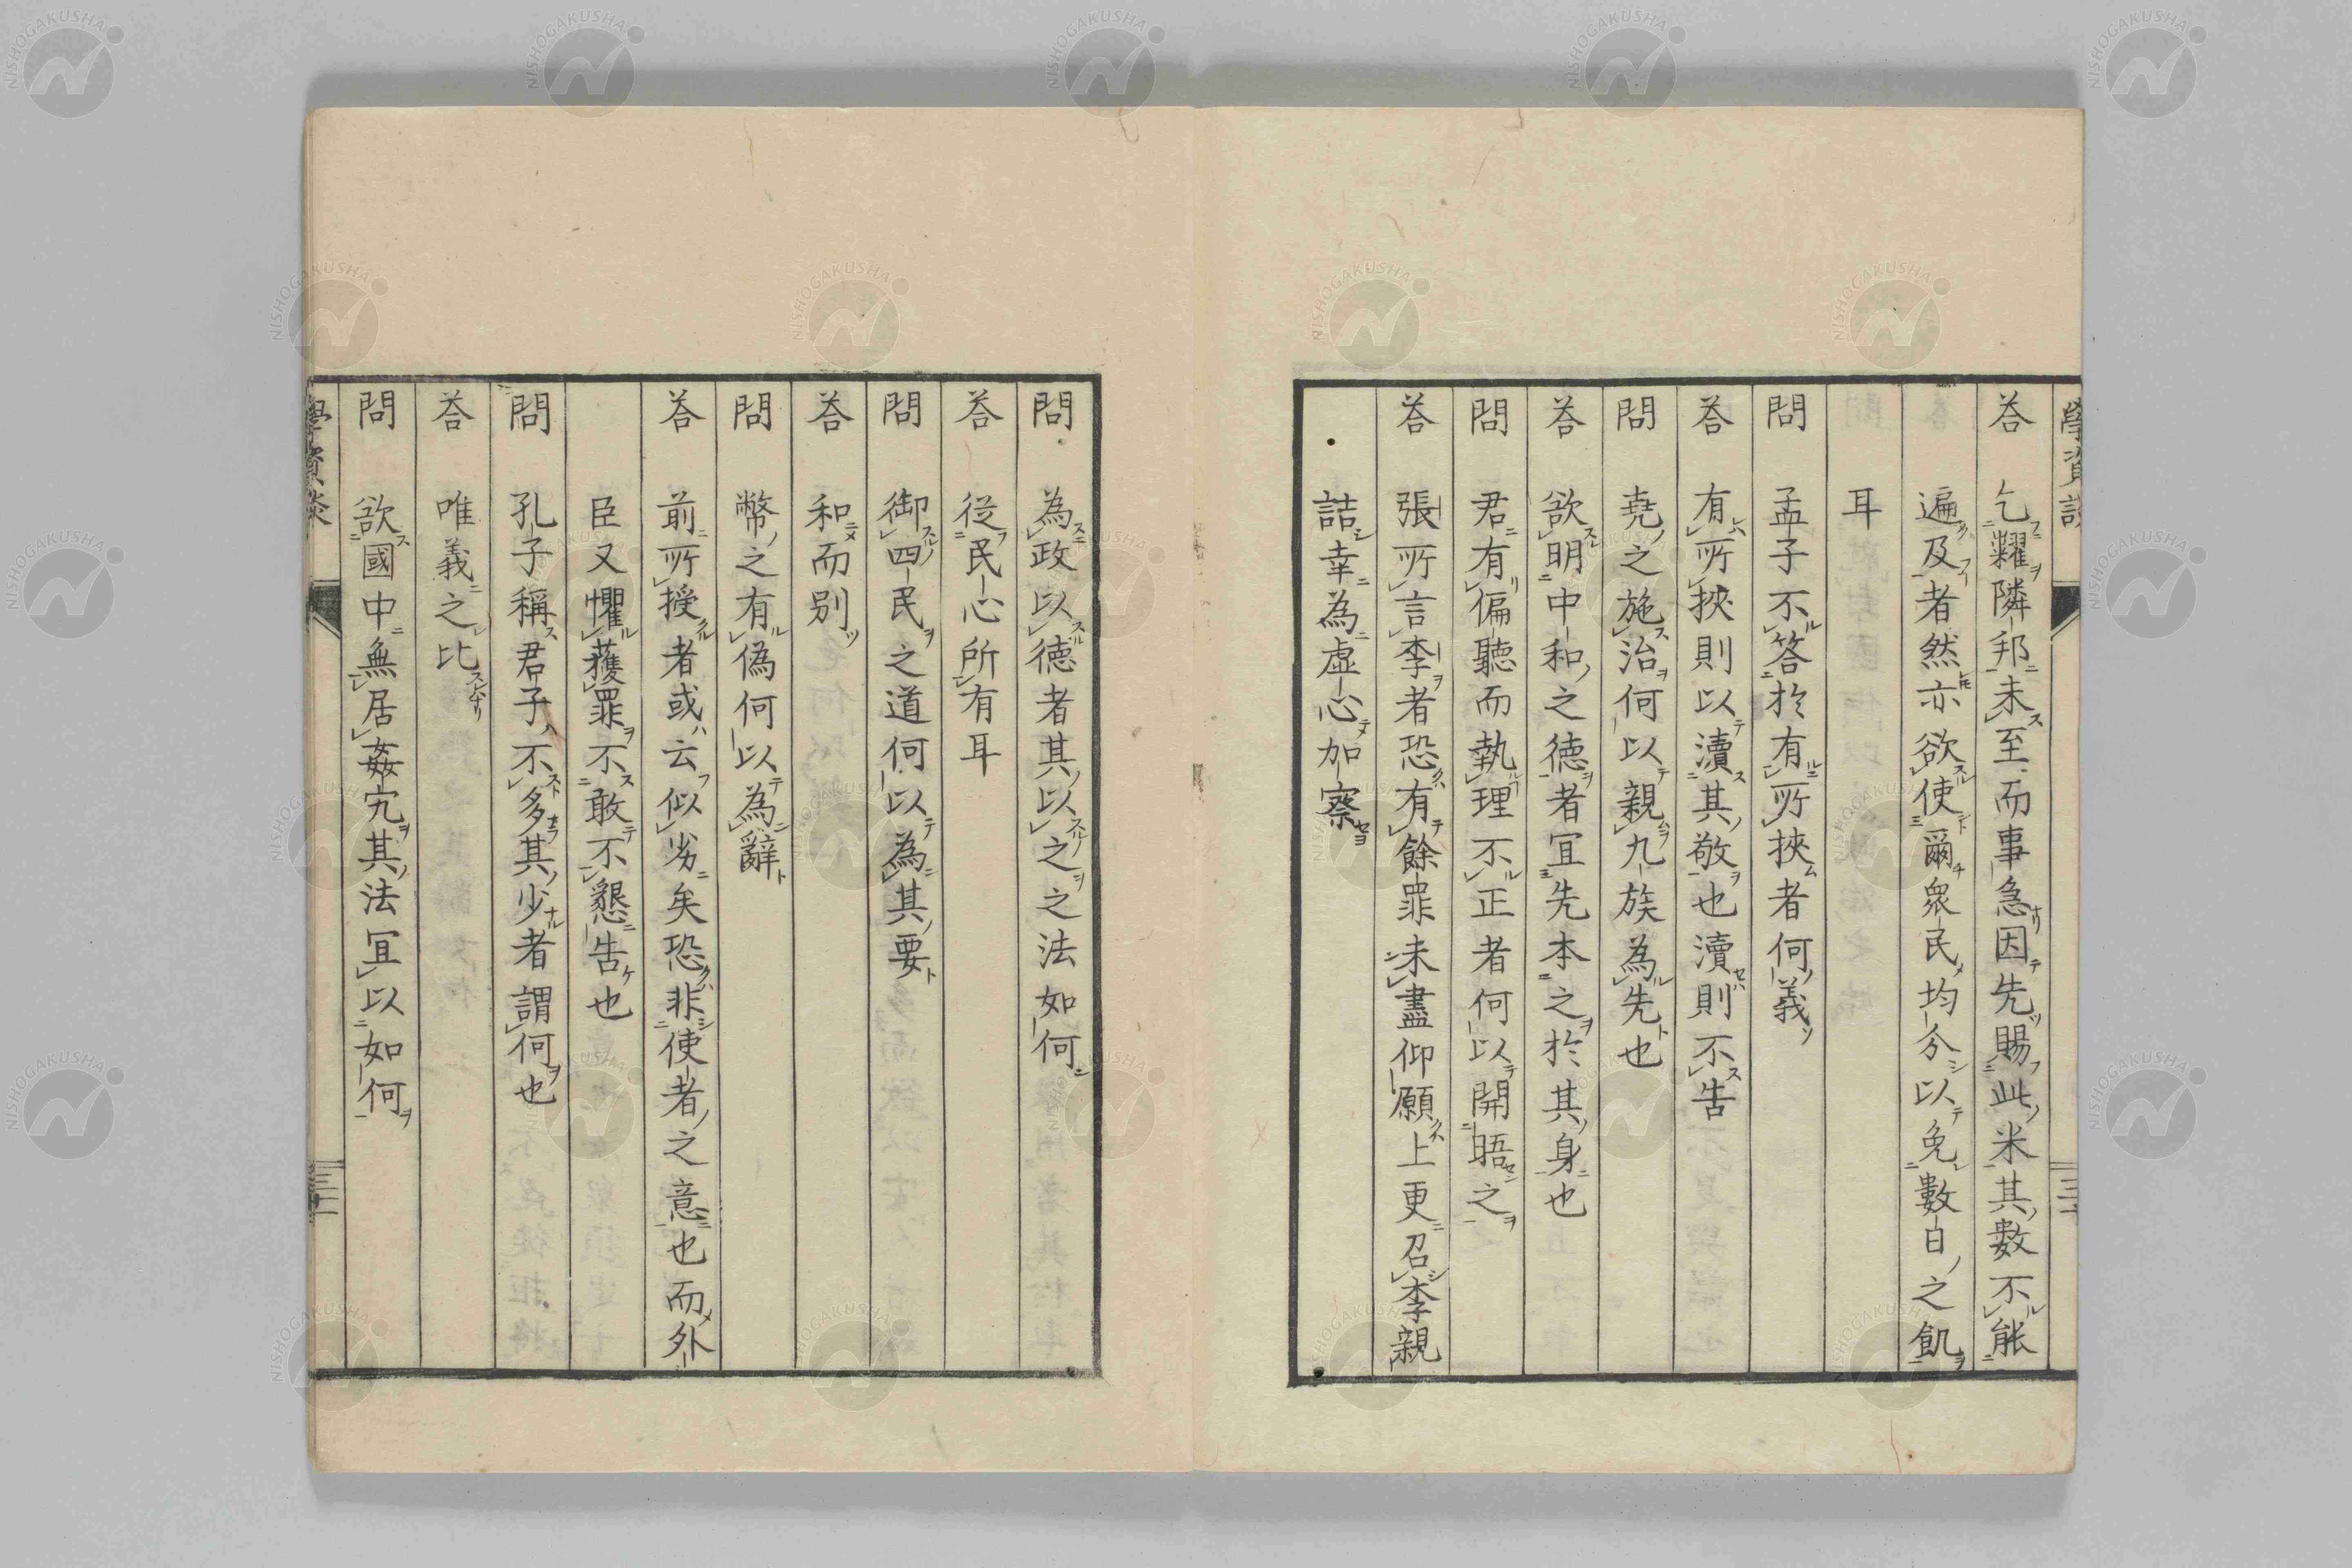 答 乞糶隣邦未至而事急因先賜此米其數不能
遍及者然亦欲使爾衆民均分以免數日之飢
耳
問 孟子不答於有所挾者何義
答 有所挾則以瀆其敬也瀆則不告
問 堯之施治何以親九族為先也
答 欲明中和之德者宜先本之於其身也
問 君有偏聽而執理不正者何以開晤之
答 張所言李者恐有餘罪未盡仰願上更召李親
詰幸為虛心加察
問 為政以德者其以之之法如何
答 從民心所有耳
問 御四民之道何以為其要
答 和而别
問 幣之有偽何以為辭
答 前所授者或云似劣矣恐非使者之意也而外
臣又懼獲罪不敢不懇告也
問 孔子稱君子不多其少者謂何也
答 唯義之比
問 欲國中無居姦宄其法宜以如何